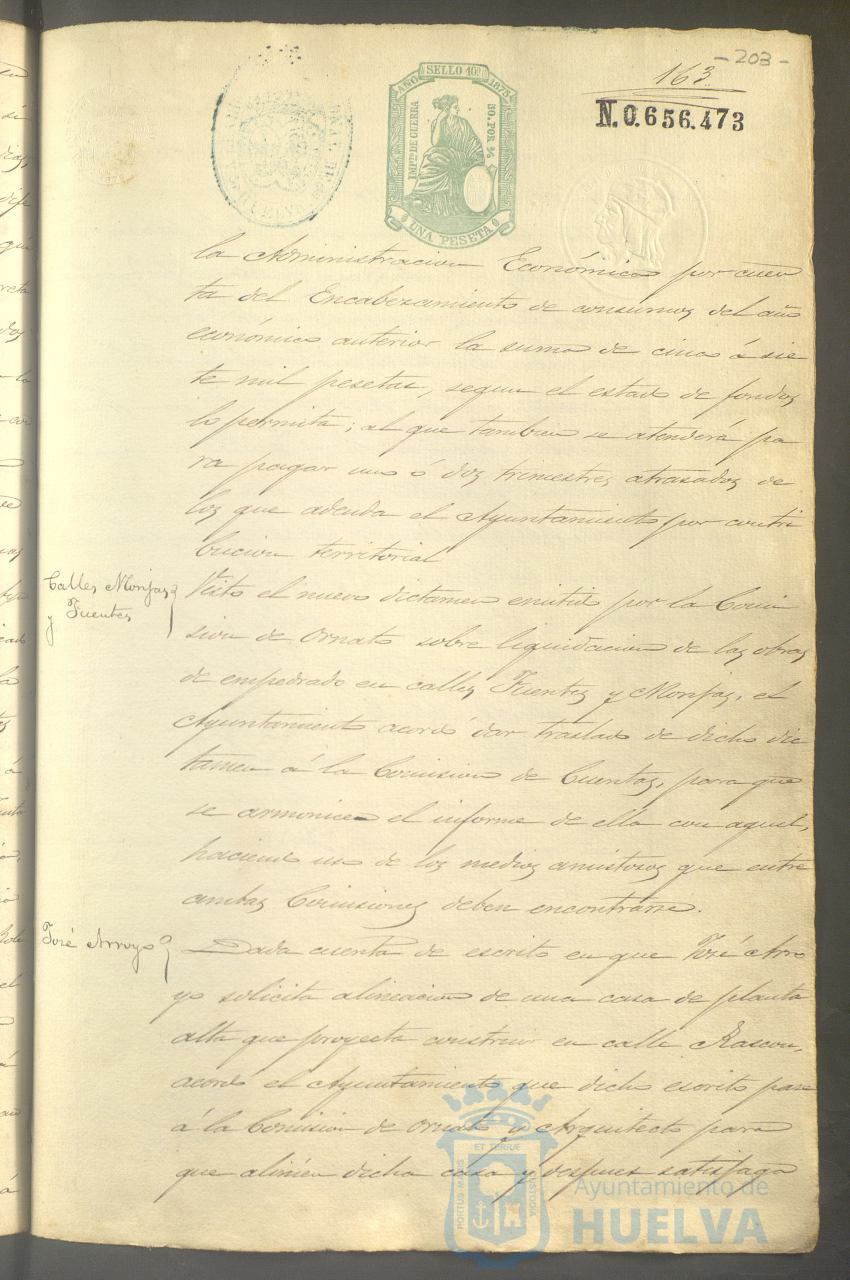 - 203 -
163.
N.0.656.473
AÑO SELLO 10º 1875
IMPTO DE GUERRA
50. POR %
UNA PESETA
la Administracion Económica por cuen
ta del Encabezamiento de consumos del año
económico anterior la suma de cinco á sie
te mil pesetas, segun el estado de fondos
lo permita; al que tambien se atenderá pa
ra pagar uno ó dos trimestres atrasados de
los que adeuda el Ayuntamiento por contri
bucion territorial
Calles Monjas
y Fuentes
Visto el nuevo dictamen emitido por la Comi
sion de Ornato sobre liquidacion de las obras
de empedrado en calles Fuentes y Monjas, el
Ayuntamiento acordó dar traslado de dicho dic
tamen á la Comision de Cuentas, para que
se armonice el informe de ella con aquel,
haciendo uso de los medios amistosos que entre
ambas Comisiones deben encontrarse.
José Arroyo
Dada cuenta de escrito en que José Arro
yo solicita alineacion de una casa de planta
alta que proyecta construir en calle Rascon,
acordó el Ayuntamiento que dicho escrito pase
á la Comision de Ornato y Arquitecto para
que alinéen dicha casa y despues satisfaga
ET TERRÆ
PORTUS MARIS
CUSTODIA
Ayuntamiento de
HUELVA